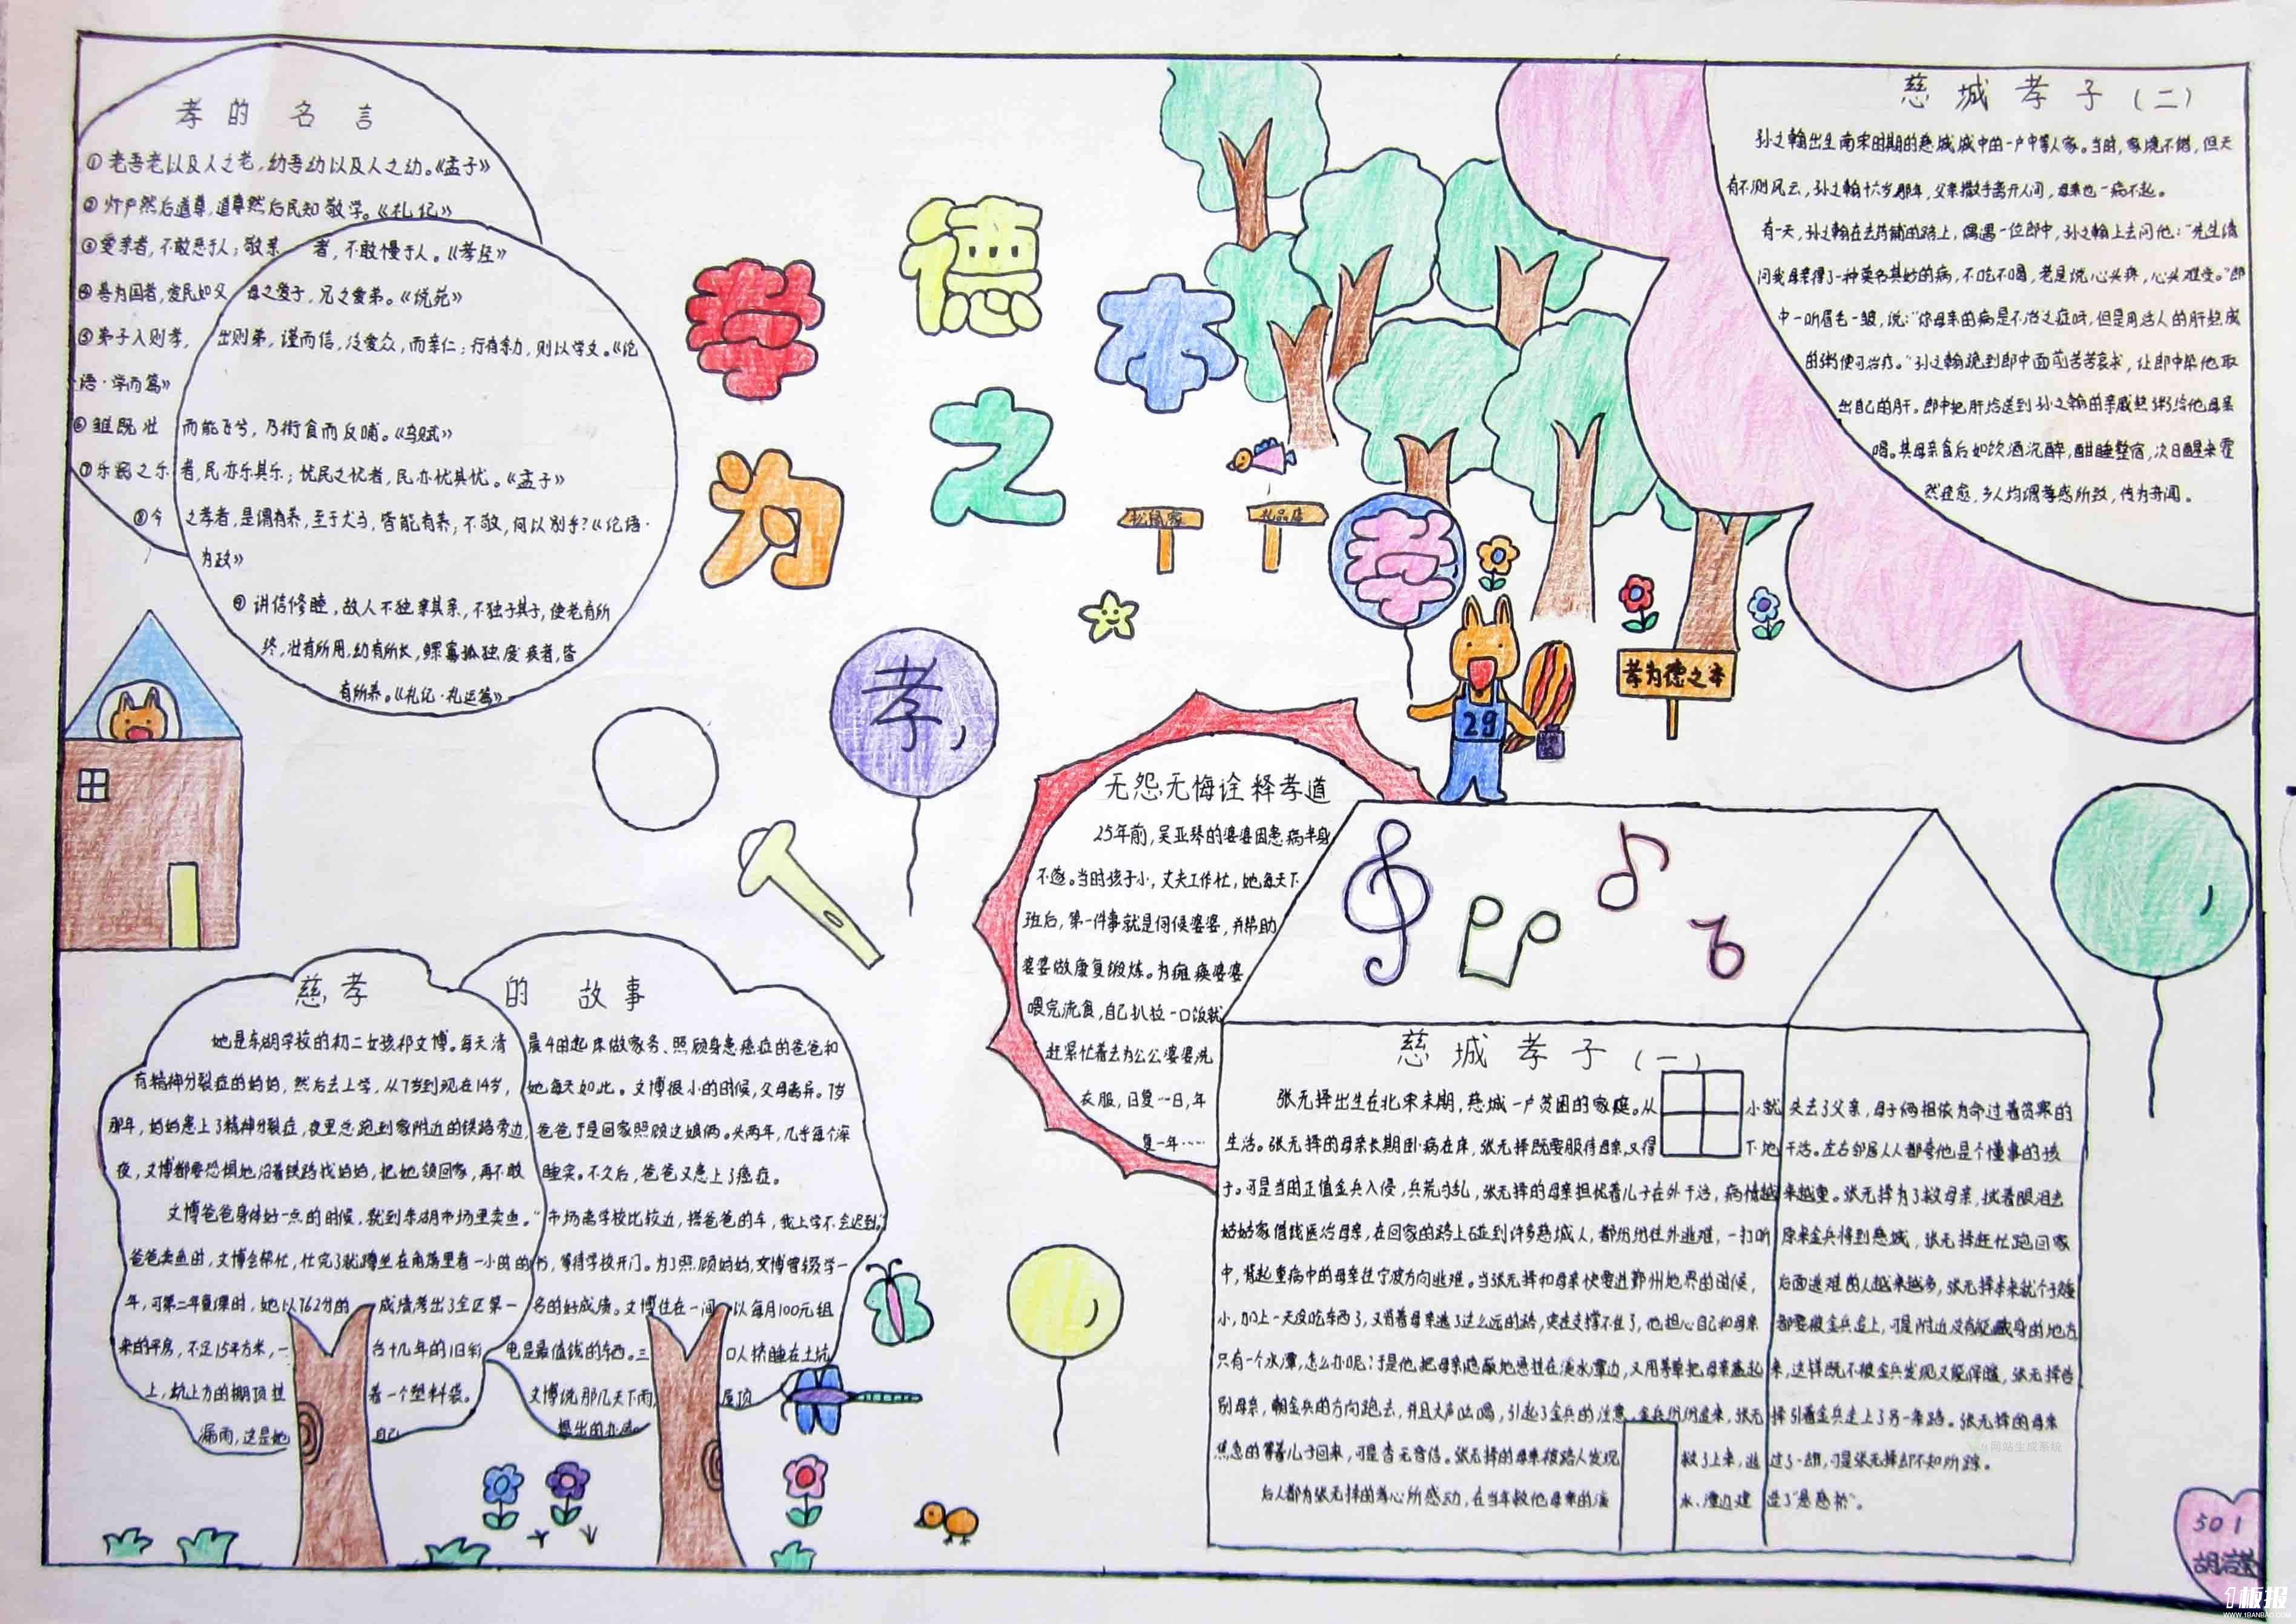 孝的名言
①老吾老以及人之老,幼吾幼以及人之幼。《孟子》
②然后道尊,道尊然后民知敬学。《礼记》
③爱亲者,不敢恶于人;敬亲者,不敢慢于人。《孝经》
④善为国者,爱民如父母之爱子,兄之爱弟。《说苑》
⑤弟子入则孝,出则弟,谨而信,泛爱众,而亲仁;行有余力,则以学文。《论
语·学而篇》
⑥雏既壮而能飞兮,乃衔食而反哺。《乌赋》
⑦乐民之乐者,民亦乐其乐;忧民之忧者,民亦忧其忧。《孟子》
⑧今之孝者,是谓有养,至于犬马,皆能有养;不敬,何以别乎?《论语·
为政》
⑨讲信修睦,故人不独亲其亲,不独子其子,使老有所
终,壮有所用,幼有所长,鳏寡孤独废疾者,皆
有所养。《礼记·礼运篇》
孝为德之本
松鼠家
礼品店
孝
孝
29
孝为德之本
慈城孝子(二)
孙之翰出生南宋时期的慈城城中的一户中等人家。当时,家境不错,但天
有不测风云,孙之翰十六岁那年,父亲撒手离开人间,母亲也一病不起。
有一天,孙之翰在去药铺的路上,偶遇一位郎中,孙之翰上去问他:“先生请
问我母亲得了一种莫名其妙的病,不吃不喝,老是说心头疼,心头难受。”郎
中一听眉毛一皱,说:“你母亲的病是不治之症呀,但是用活人的肝熬成
的粥便可治疗。”孙之翰跪到郎中面前苦苦哀求,让郎中帮他取
出自己的肝。郎中把肝给送到孙之翰的亲戚熬粥给他母亲
喝。其母亲食后如饮酒沉醉,酣睡整宿,次日醒来霍
然痊愈,乡人均谓孝感所致,传为奇闻。
无怨无悔诠释孝道
25年前,吴亚琴的婆婆因患病半身
不遂。当时孩子小,丈夫工作忙,她每天下
班后,第一件事就是伺候婆婆,并帮助
婆婆做康复锻炼。为瘫痪婆婆
喂完流食,自己扒拉一口饭就
赶紧忙着去为公公婆婆洗
衣服,日复一日,年
复一年……
慈孝的故事
她是东湖学校的初二女孩祁文博。每天清晨4时起床做家务、照顾身患癌症的爸爸和
有精神分裂症的妈妈,然后去上学,从7岁到现在14岁,她每天如此。文博很小的时候,父母离异。7岁
那年,妈妈患上了精神分裂症,夜里总跑到家附近的铁路旁边,爸爸于是回家照顾这娘俩。头两年,几乎每个深
夜,文博都要恐惧地沿着铁路找妈妈,把她领回家,再不敢睡实。不久后,爸爸又患上了癌症。
文博爸爸身体好一点的时候,就到东湖市场里卖鱼。“市场离学校比较近,搭爸爸的车,我上学不会迟到。”
爸爸卖鱼时,文博会帮忙,忙完了就蹲坐在角落里看一小时的书,等待学校开门。为了照顾妈妈,文博曾留级学一
年,可第二年复课时,她以762分的成绩考出了全区第一名的好成绩。文博住在一间以每月100元租
来的平房,不足15平方米,一台十几年的旧彩电是最值钱的东西。三口人挤睡在土炕
上,炕上方的棚顶挂着一个塑料袋。文博说那几天下雨,屋顶
漏雨,这是她自己想出的办法。
慈城孝子(一)
张无择出生在北宋末期,慈城一户贫困的家庭。从小就失去了父亲,母子俩相依为命过着贫寒的
生活。张无择的母亲长期卧病在床,张无择既要服侍母亲,又得下地干活。左右邻居人人都夸他是个懂事的孩
子。可是当时正值金兵入侵,兵荒马乱,张无择的母亲担忧着儿子在外干活,病情越来越重。张无择为了救母亲,拭着眼泪去
姑姑家借钱医治母亲,在回家的路上碰到许多慈城人,都纷纷往外逃难,一打听原来金兵将到慈城,张无择赶忙跑回家
中,背起重病中的母亲往宁波方向逃难。当张无择和母亲快要进鄞州地界的时候,后面逃难的人越来越多,张无择本来就个子矮
小,加上一天没吃东西了,又背着母亲逃了这么远的路,实在支撑不住了,他担心自己和母亲都要被金兵追上,可是附近没有能藏身的地方
只有一个水潭,怎么办呢?于是他把母亲隐蔽地悬挂在溪水潭边,又用茅草把母亲盖起来,这样既不被金兵发现又能保暖,张无择告
别母亲,朝金兵的方向跑去,并且大声吆喝,引起了金兵的注意,金兵纷纷追来,张无择引着金兵走上了另一条路。张无择的母亲
焦急的等着儿子回来,可是杳无音信。张无择的母亲被路人发现救了上来,逃过了一劫,可是张无择却不知所踪。
后人都为张无择的孝心所感动,在当年救他母亲的溪水潭边建造了“悬慈桥”。
网站生成系统
501
1板报
WWW.1BANBAO.COM